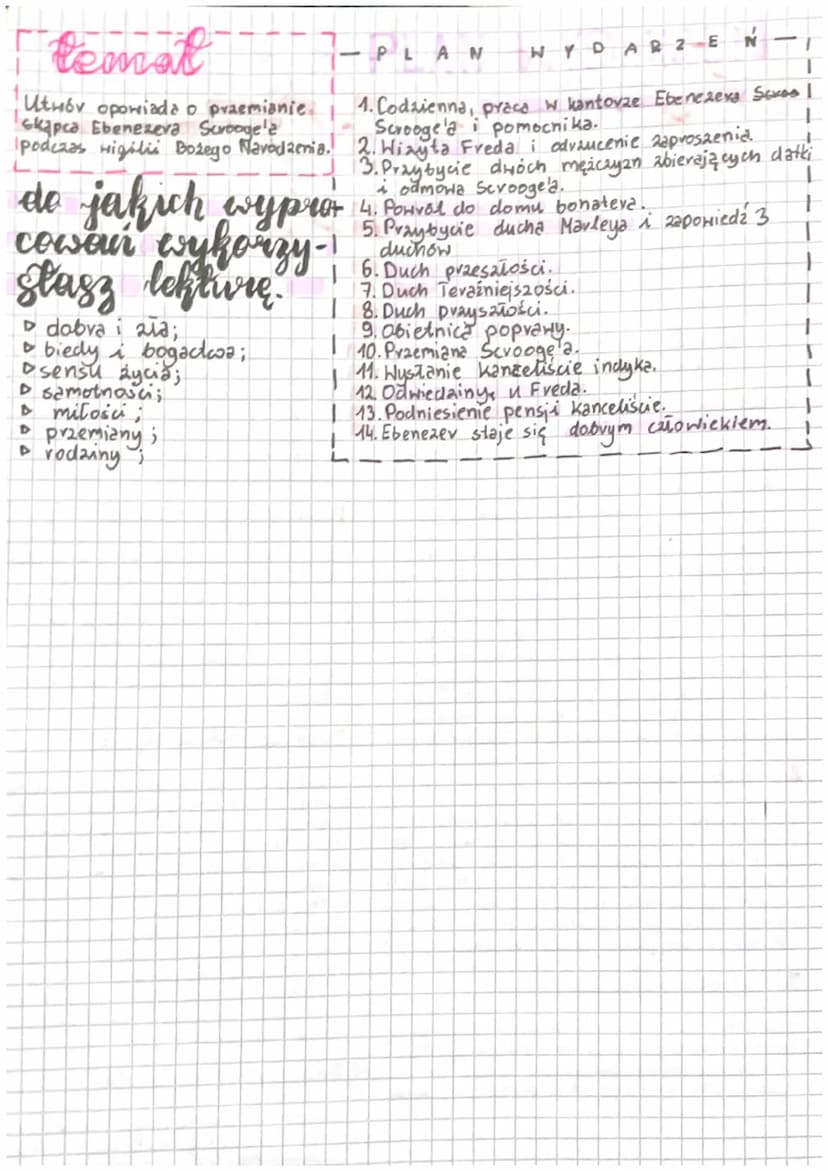 temat
Utwór opowiada o przemianie
skąpca Ebenezera Scrooge'a
podczas wigilii Bożego Narodzenia.
do jakich wypra-
cowań wykorzy-
stasz lekturę.
▷ dobra i zła;
▷ biedy i bogactwa;
▷ sensu życia;
▷ samotności;
▷ miłości;
▷ przemiany;
▷ rodziny;
— PLAN WYDARZEŃ —
1. Codzienna, praca w kantorze Ebenezera
Scrooge'a i pomocnika.
2. Wizyta Freda i odrzucenie zaproszenia.
3. Przybycie dwóch mężczyzn zbierających datki
i odmowa Scrooge'a.
4. Powrót do domu bohatera.
5. Przybycie ducha Marleya i zapowiedź 3
duchów
6. Duch przeszłości.
7. Duch Teraźniejszości.
8. Duch przyszłości.
9. Obietnica poprawy.
10. Przemiana Scrooge'a.
11. Wysłanie kanceliście indyka.
12. Odwiedziny u Freda.
13. Podniesienie pensji kanceliście.
14. Ebenezer staje się dobrym człowiekiem.